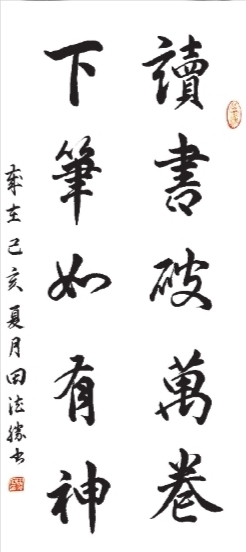 讀書破萬卷
下筆如有神
歲在己亥夏月田德勝書